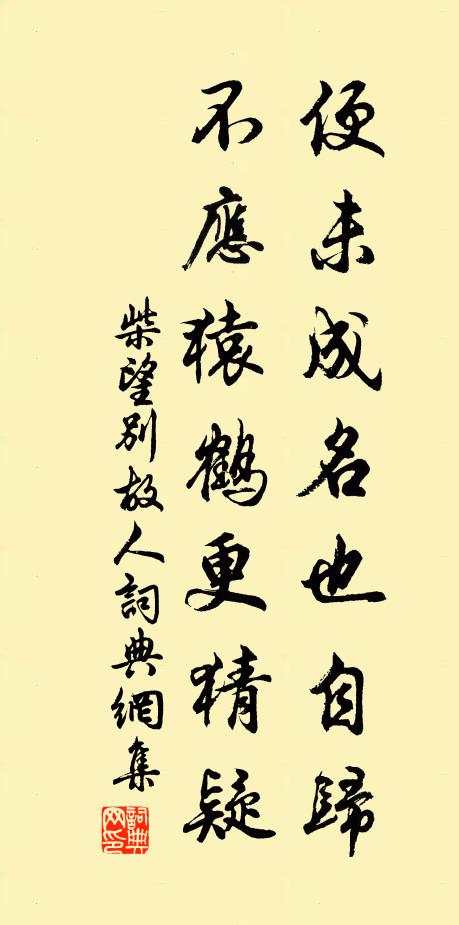 便未成名也自歸
不應猿鶴更猜疑
柴望別故人詞典網集
詞典网印